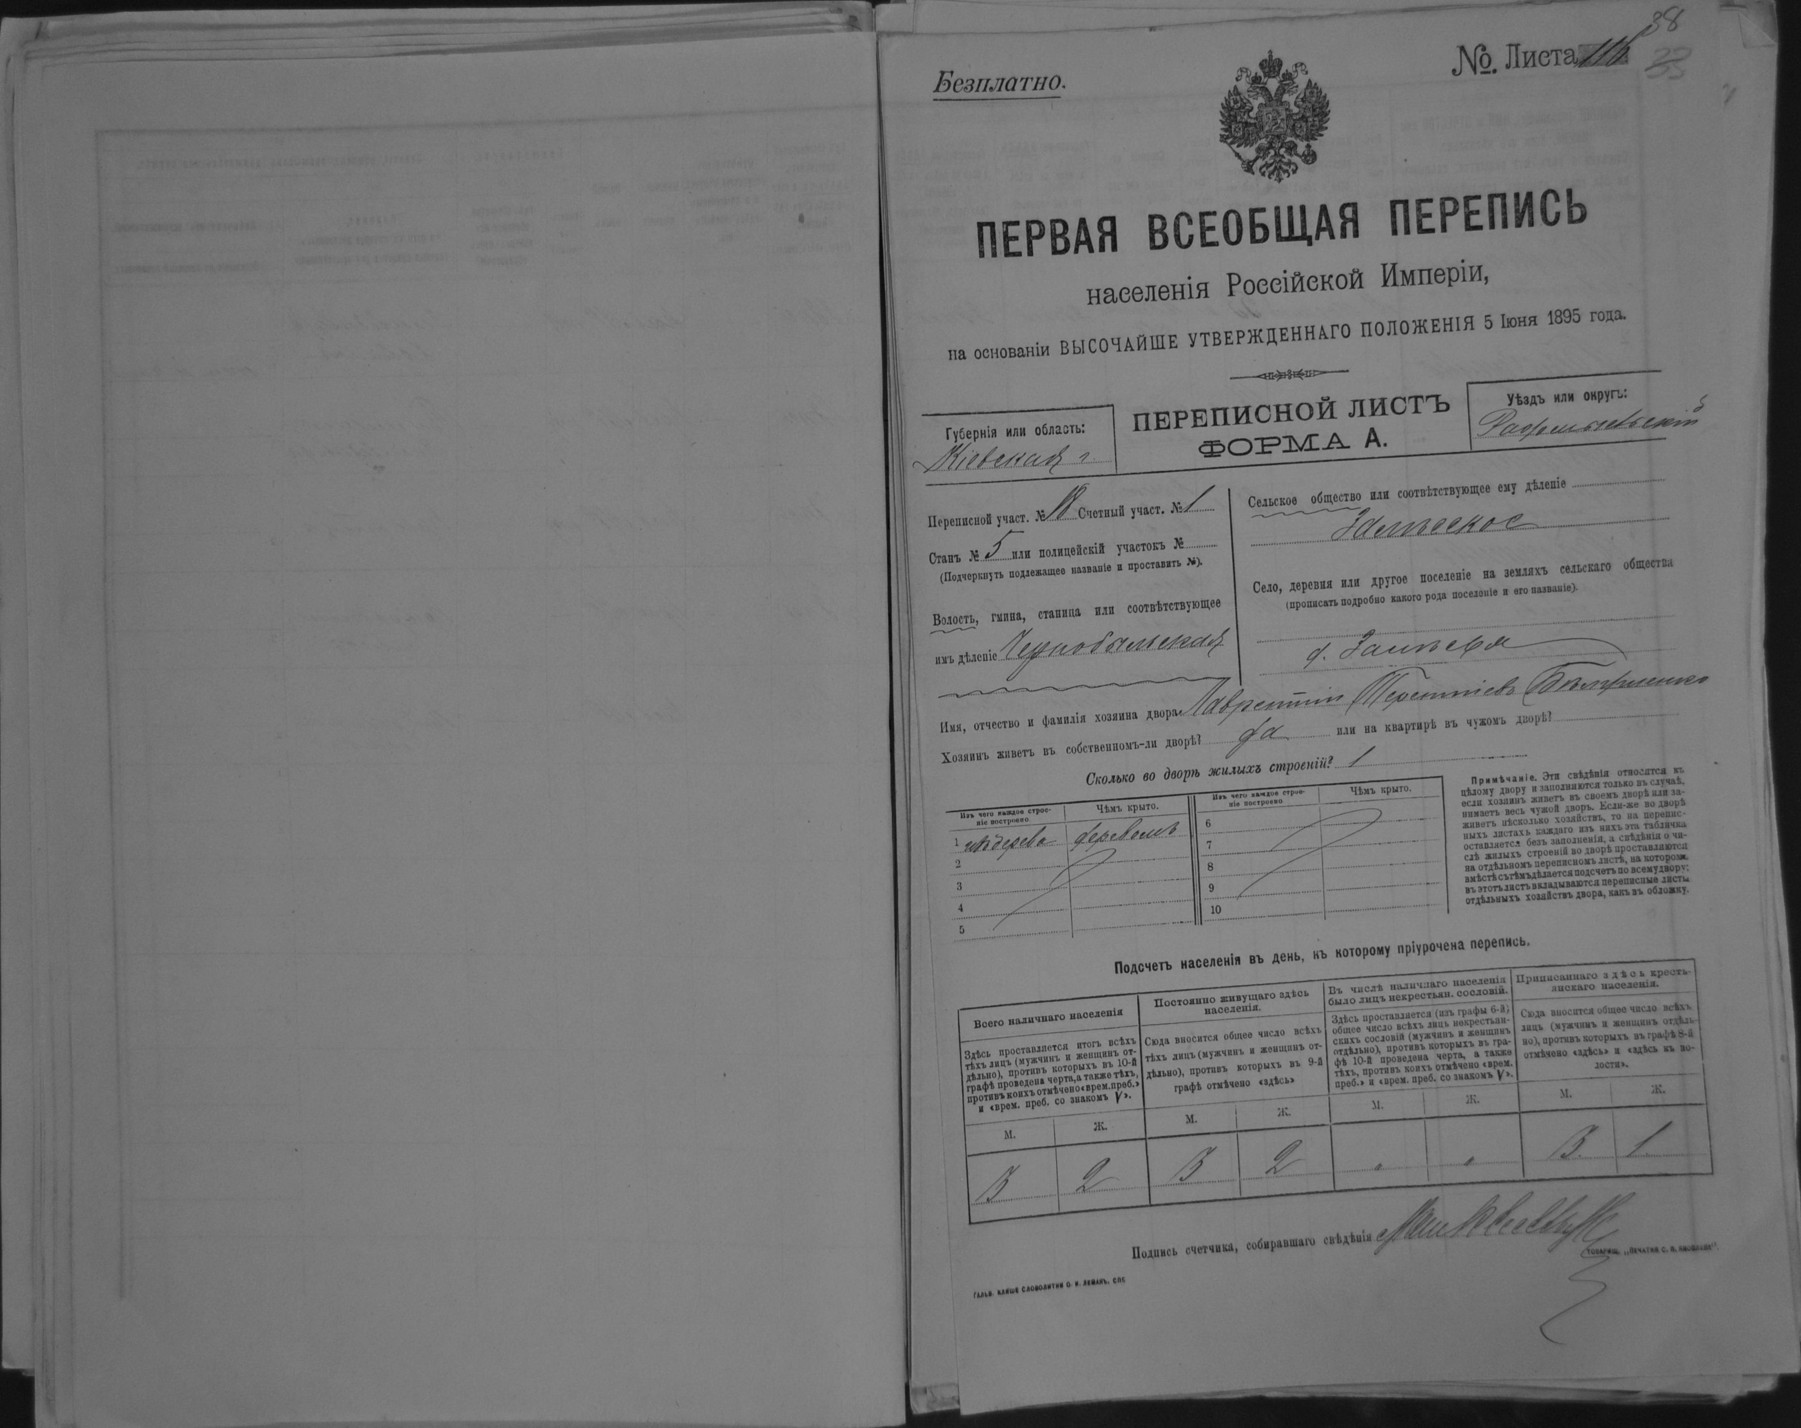 38
Безплатно.
№. Листа 116
33
ПЕРВАЯ ВСЕОБЩАЯ ПЕРЕПИСЬ
населенія Россійской Имперіи,
на основаніи ВЫСОЧАЙШЕ УТВЕРЖДЕННАГО ПОЛОЖЕНІЯ 5 Іюня 1895 года.
Губернія или область:
Кіевская г
ПЕРЕПИСНОЙ ЛИСТЪ
ФОРМА А.
Уѣздъ или округъ:
Радомысльскій
Переписной участ. № Счетный участ. № 1
Станъ № 5 или полицейскій участокъ №
(Подчеркнуть подлежащее названіе и проставить №).
Волость, гмина, станица или соотвѣтствующее
имъ дѣленіе Чернобыльская
Сельское общество или соотвѣтствующее ему дѣленіе
Залѣсское
Село, деревня или другое поселеніе на земляхъ сельскаго общества
(прописать подробно какого рода поселеніе и его названіе).
д. Залѣсья
Имя, отчество и фамилія хозяина двора Лаврентій Терентіевъ
Хозяинъ живетъ въ собственномъ-ли дворѣ? да или на квартирѣ въ чужомъ дворѣ?
Сколько во дворѣ жилыхъ строеній? 1
Изъ чего каждое строе-
ніе построено
Чѣмъ крыто.
1 изъ дерева деревомъ
2
3
4
5
Изъ чего каждое строе-
ніе построено
Чѣмъ крыто.
6
7
8
9
10
Примѣчаніе. Эти свѣдѣнія относятся къ
цѣлому двору и заполняются только въ случаѣ,
если хозяинъ живетъ въ своемъ дворѣ или за-
нимаетъ весь чужой дворъ. Если-же во дворѣ
живетъ нѣсколько хозяйствъ, то на перепис-
ныхъ листахъ каждаго изъ нихъ эта табличка
оставляется безъ заполненія, а свѣдѣнія о чи-
слѣ жилыхъ строеній во дворѣ проставляются
на отдѣльномъ переписномъ листѣ, на которомъ
вмѣстѣ съ тѣмъ дѣлается подсчетъ по всему двору;
въ этотъ листъ вкладываются переписные листы
отдѣльныхъ хозяйствъ двора, какъ въ обложку.
Подсчетъ населенія въ день, къ которому пріурочена перепись.
Всего наличнаго населенія
Здѣсь проставляется итогъ всѣхъ
тѣхъ лицъ (мужчинъ и женщинъ от-
дѣльно), противъ которыхъ въ 10-й
графѣ проведена черта, а также тѣхъ,
противъ коихъ отмѣчено «врем. преб.»
и «врем. преб. со знакомъ V».
М. Ж.
Постоянно живущаго здѣсь
населенія.
Сюда вносится общее число всѣхъ
тѣхъ лицъ (мужчинъ и женщинъ от-
дѣльно), противъ которыхъ въ 9-й
графѣ отмѣчено «здѣсь»
М. Ж.
Въ числѣ наличнаго населенія
было лицъ некрестьян. сословій.
Здѣсь проставляется (изъ графы 6-й)
общее число всѣхъ лицъ некрестьян-
скихъ сословій (мужчинъ и женщинъ
отдѣльно), противъ которыхъ въ гра-
фѣ 10-й проведена черта, а также
тѣхъ, противъ коихъ отмѣчено «врем.
преб.» и «врем. преб. со знакомъ V».
М. Ж.
Приписаннаго здѣсь кресть-
янскаго населенія.
Сюда вносится общее число всѣхъ
лицъ (мужчинъ и женщинъ отдѣль-
но), противъ которыхъ въ графѣ 8-й
отмѣчено «здѣсь» и «здѣсь къ во-
лости».
М. Ж.
3 2 3 2 „ „ 3 1
Подпись счетчика, собиравшаго свѣдѣнія
ГАЛЬВ. КЛИШЕ СЛОВОЛИТНИ О. И. ЛЕМАНЪ, СПБ